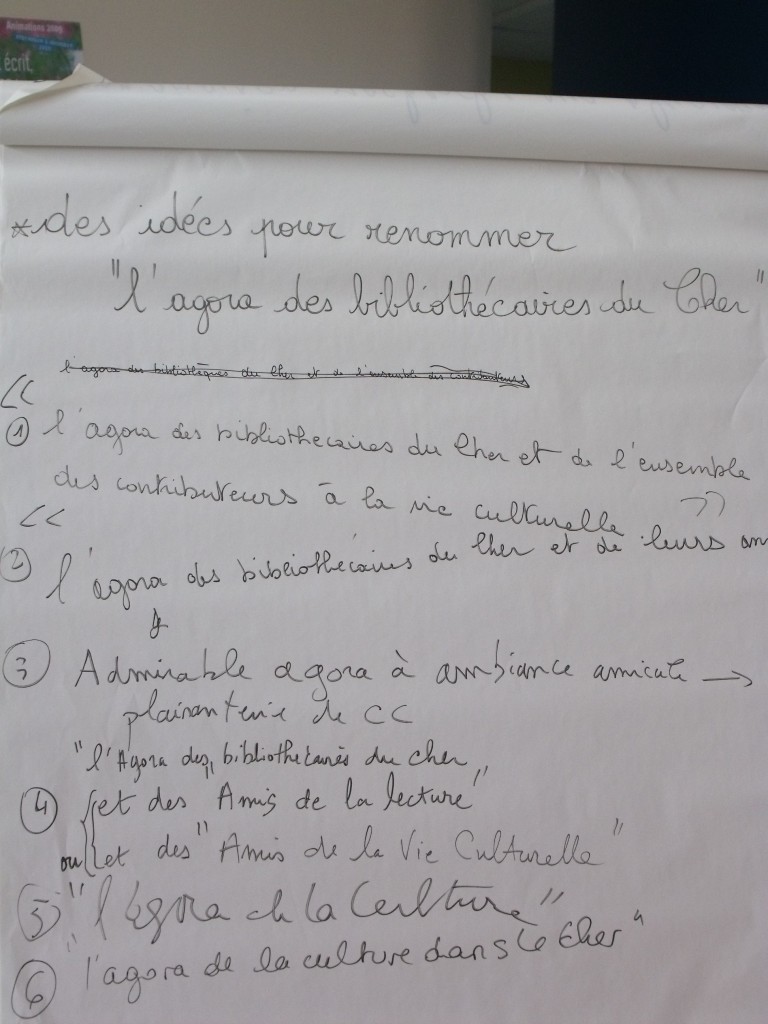 Animations 2009
écrit,
*des idées pour renommer
"l'agora des bibliothécaires du Cher"
l'agora des bibliothèques du Cher et de l'ensemble des contributeurs
<<
① l'agora des bibliothecaires du Cher et de l'ensemble
des contributeurs à la vie culturelle >>
<<
② l'agora des bibliothécaires du Cher et de leurs am
③ Admirable agora à ambiance amicale →
plaisanterie de CC
"l'Agora des bibliothécaires du cher
④ et des "Amis de la lecture"
ou et des "Amis de la Vie Culturelle"
⑤ "l'égora de la Culture"
⑥ "l'agora de la culture dans le Cher"